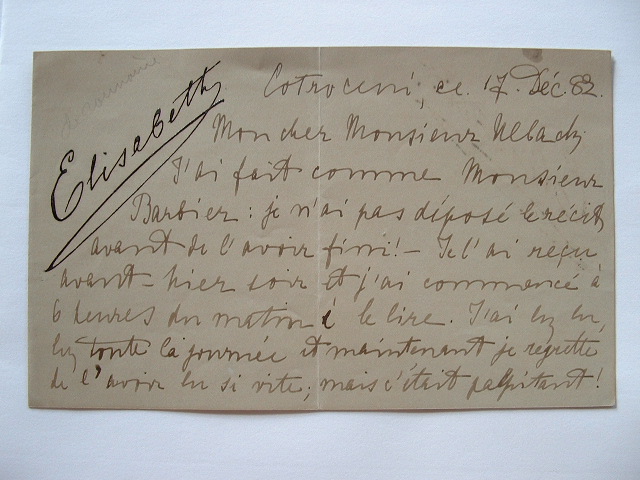 Elisabeth
Cotroceni, ce 17. Déc. 82.
Mon cher Monsieur Ulbach,
J'ai fait comme Monsieur
Barbier : je n'ai pas déposé le récit
avant de l'avoir fini! – Je l'ai reçu
avant-hier soir et j'ai commencé à
6 heures du matin à le lire. J'ai lu, lu,
lu toute la journée et maintenant je regrette
de l'avoir lu si vite; mais c'était palpitant!